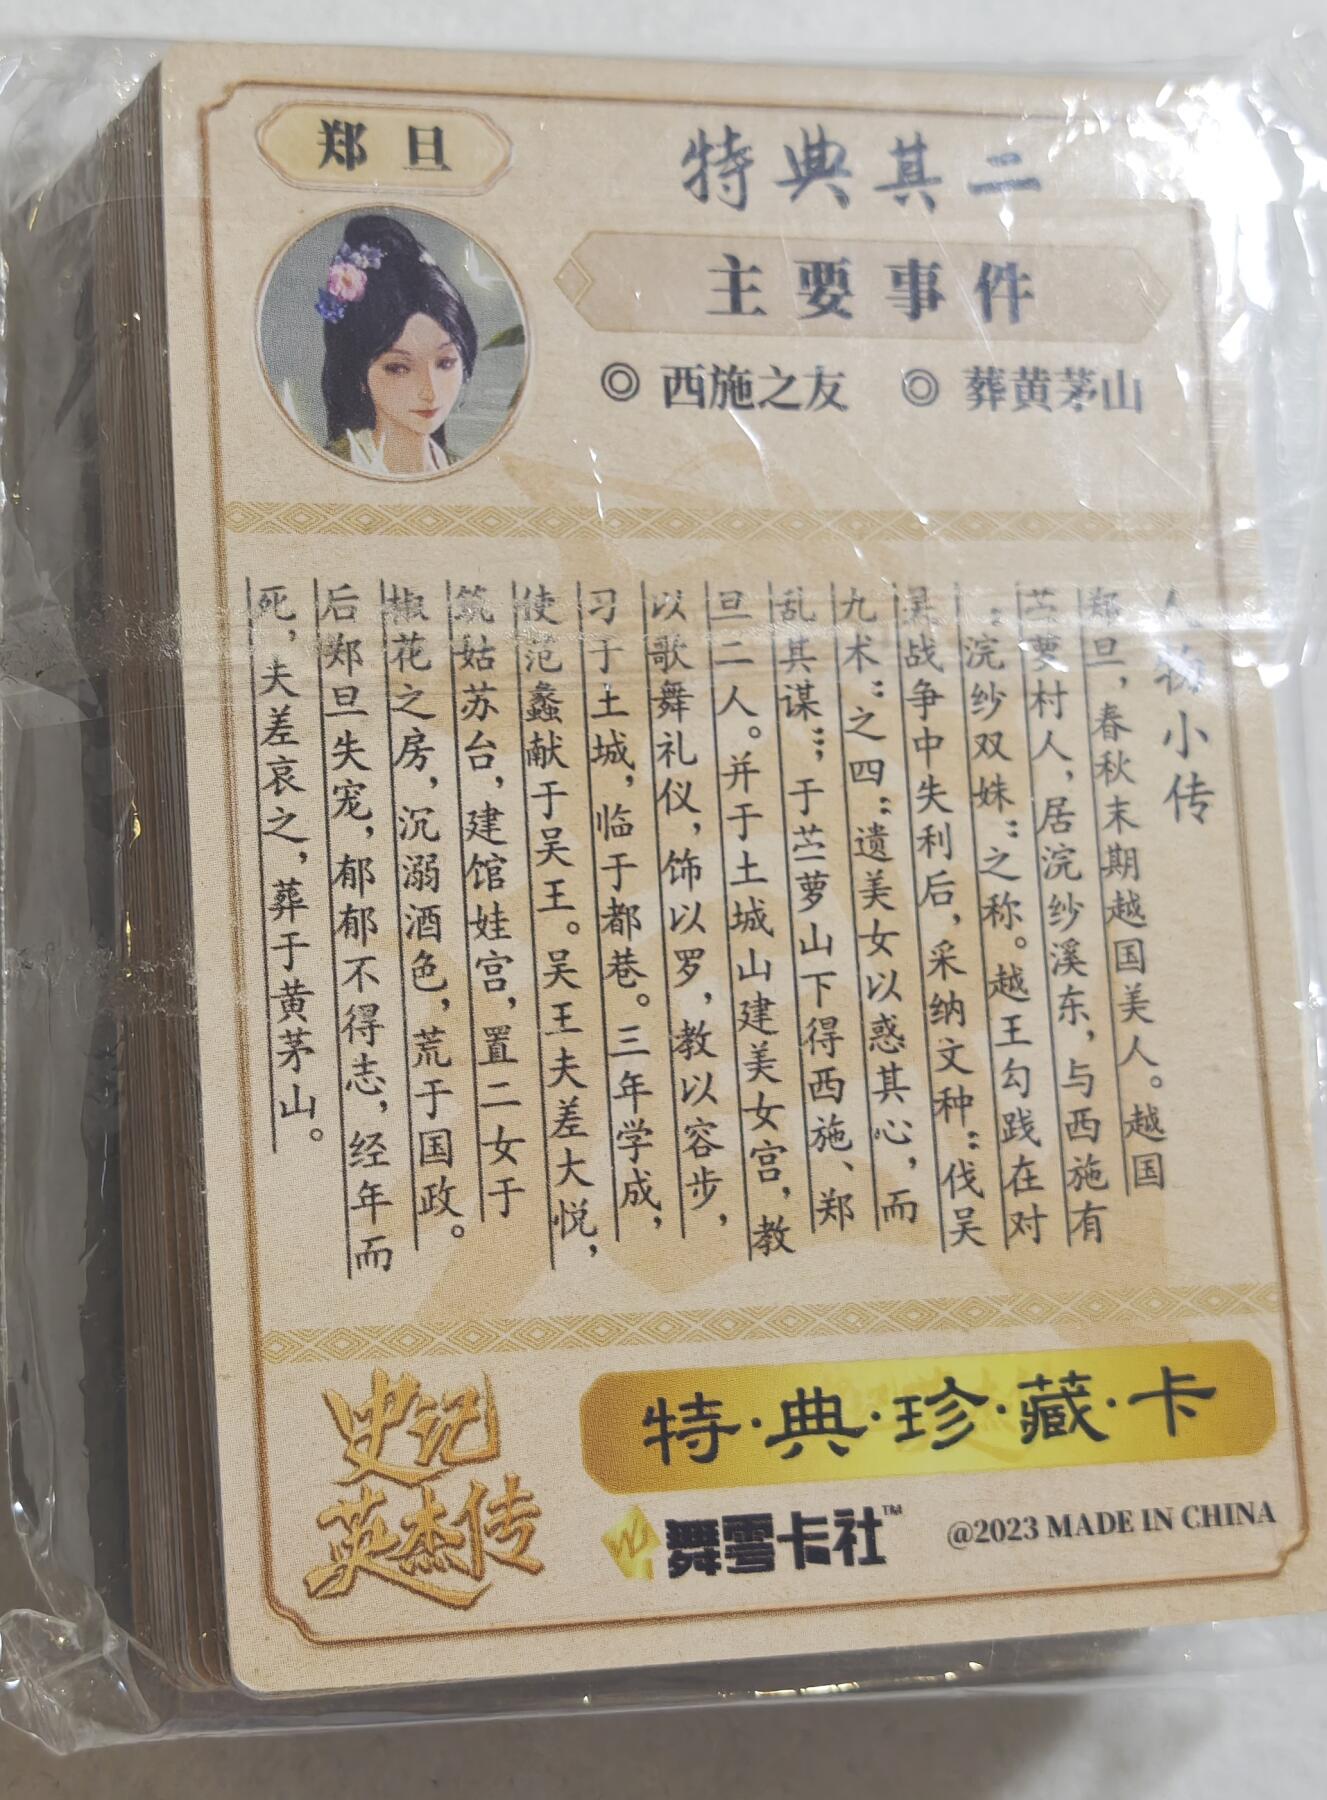 郑旦
特典其二
主要事件
◎ 西施之友 ◎ 葬黄茅山
人物小传
郑旦，春秋末期越国美人。越国
苎萝村人，居浣纱溪东，与西施有
“浣纱双姝”之称。越王勾践在对
吴战争中失利后，采纳文种“伐吴
九术”之四“遗美女以惑其心，而
乱其谋”，于苎萝山下得西施、郑
旦二人。并于土城山建美女宫，教
以歌舞礼仪，饰以罗，教以容步，
习于土城，临于都巷。三年学成，
使范蠡献于吴王。吴王夫差大悦，
筑姑苏台，建馆娃宫，置二女于
椒花之房，沉溺酒色，荒于国政。
后郑旦失宠，郁郁不得志，经年而
死，夫差哀之，葬于黄茅山。
史记
英杰传
特·典·珍·藏·卡
舞雩卡社™
@2023 MADE IN CHINA